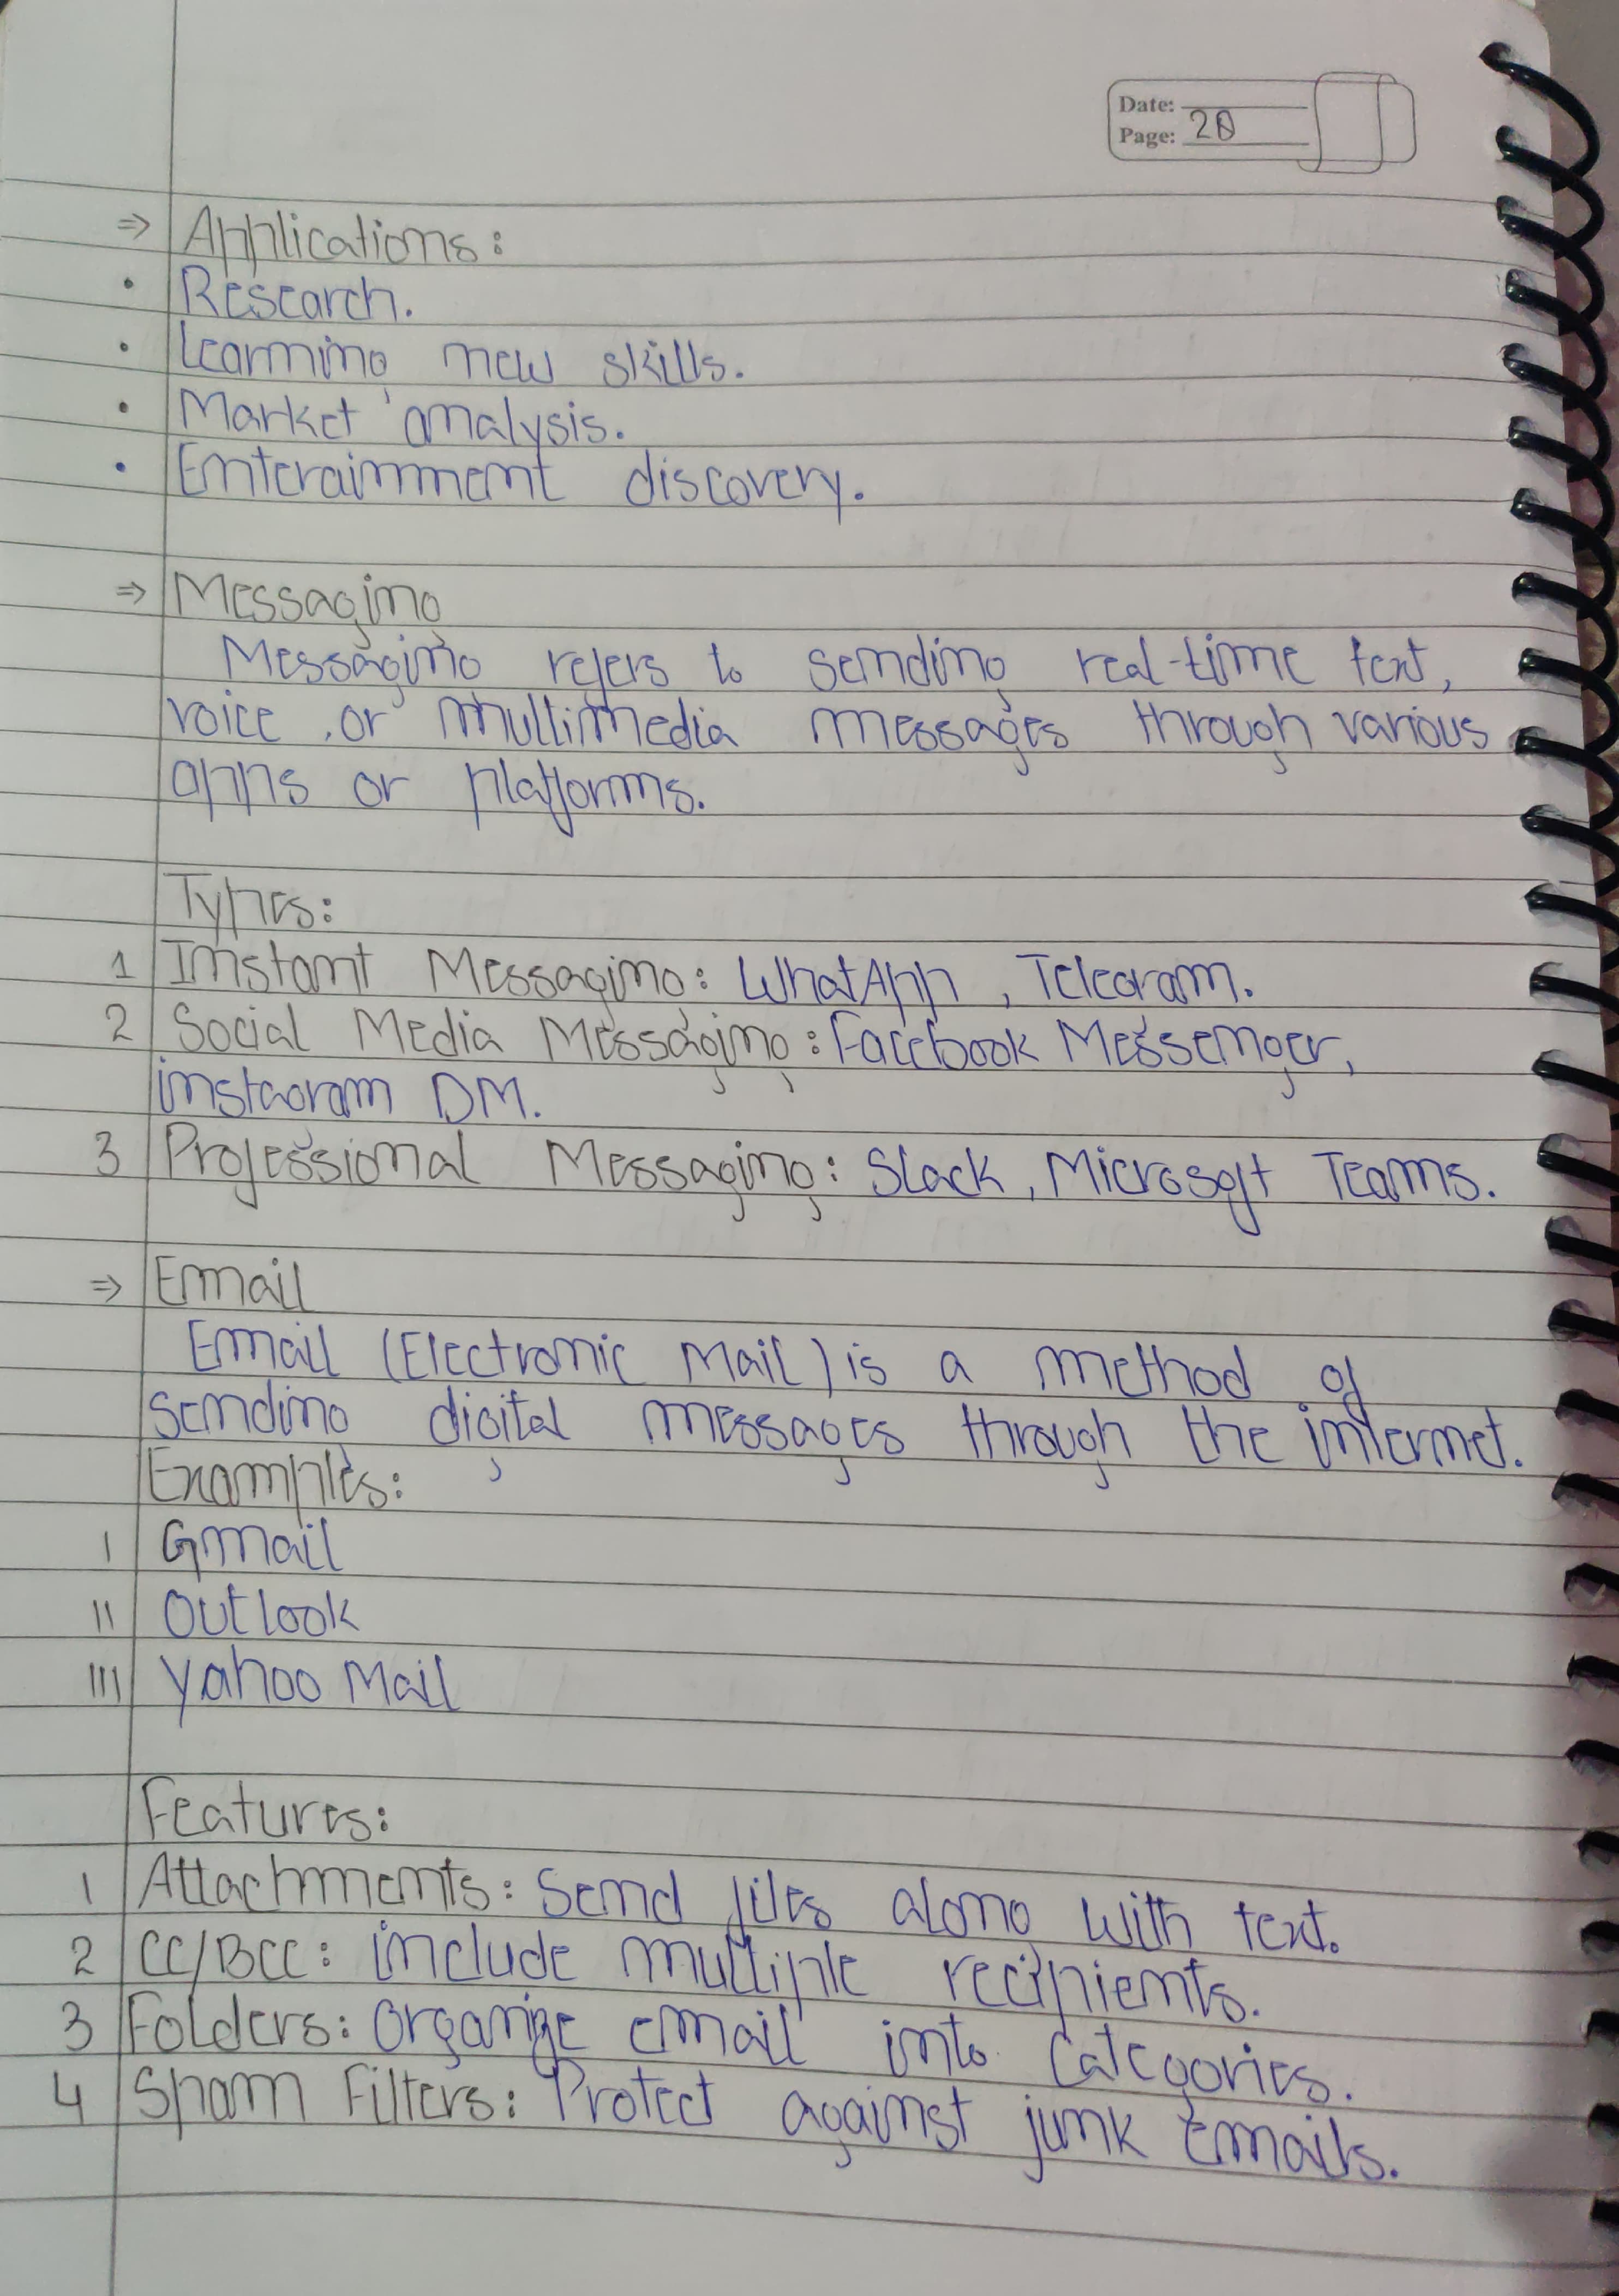 Date:
Page: 20
⇒ Applications:
• Research.
• Learning new skills.
• Market analysis.
• Enterainment discovery.
⇒ Messaging
Messaging refers to sending real-time text,
voice, or multimedia messages through various
apps or platforms.
Types:
1 Instant Messaging: WhatApp, Telegram.
2 Social Media Messaging: Facebook Messenger,
instagram DM.
3 Professional Messaging: Slack, Microsoft Teams.
⇒ Email
Email (Electronic Mail) is a method of
sending digital messages through the internet.
Examples:
I Gmail
II Outlook
III Yahoo Mail
Features:
1 Attachments: Send files along with text.
2 CC/BCC: include multiple recipients.
3 Folders: organize email into categories.
4 Spam Filters: Protect against junk Emails.